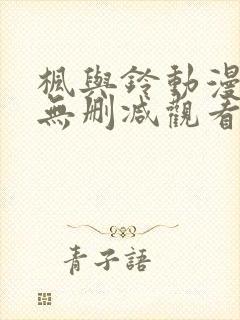 楓與鈴動漫
無刪減觀看
青子語